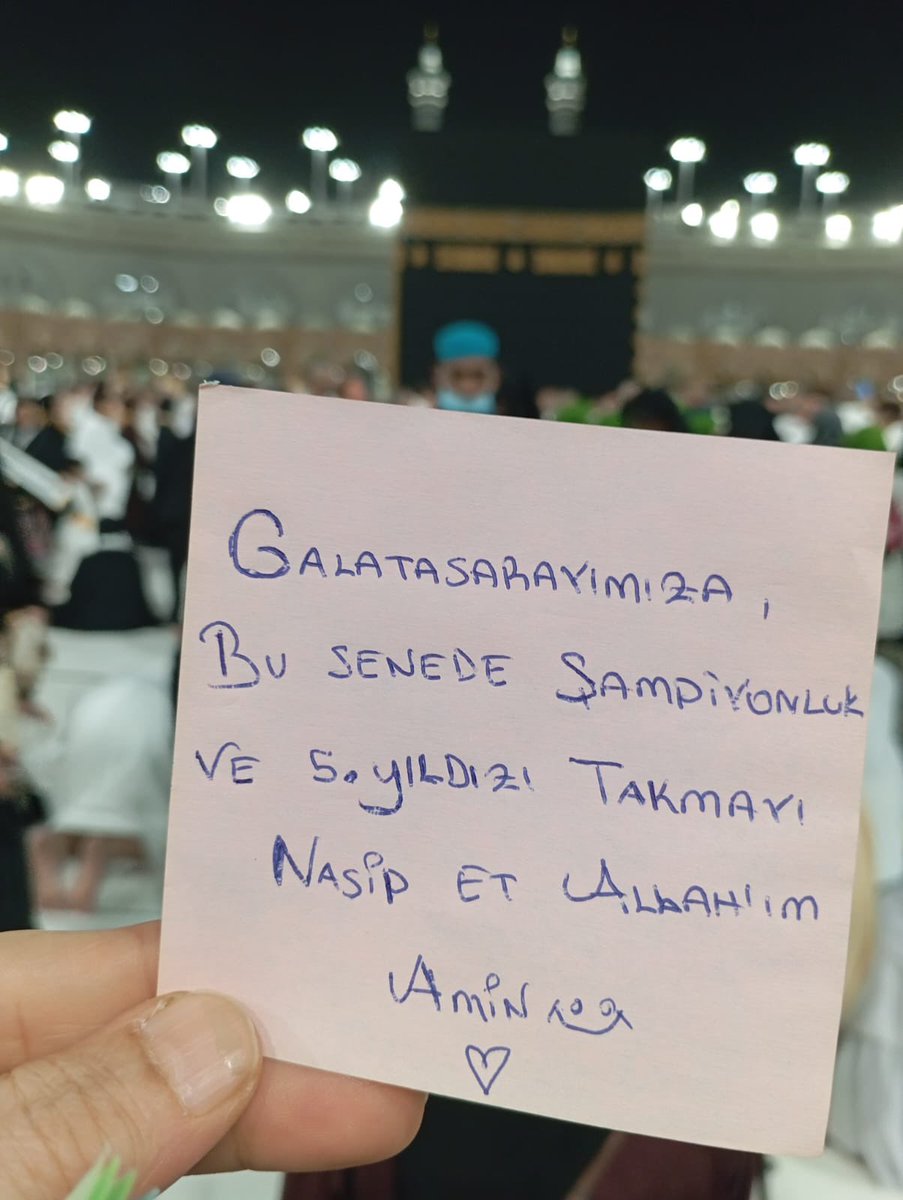 GALATASARAYIMIZA,
BU SENEDE ŞAMPİYONLUK
VE 5. YILDIZI TAKMAYI
NASİP ET ALLAH'IM
AMİN